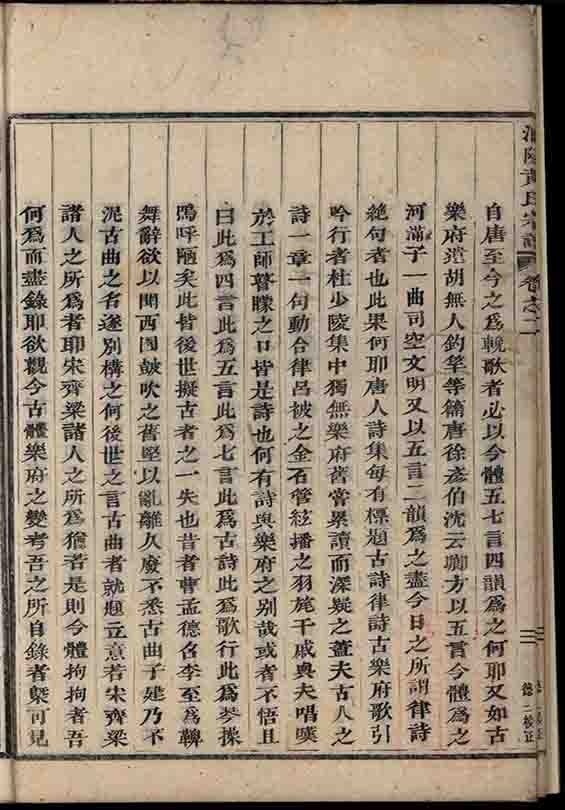 黃氏宗譜 卷之二
自唐至今之爲輓歌者必以今體五七言四韻爲之何耶又如古
樂府遣胡無人釣竿等篇唐徐彥伯沈云卿方以五言今體爲之
河滿子一曲司空文明又以五言二韻爲之盡今日之所謂律詩
絕句者也此果何耶唐人詩集每有標題古詩律詩古樂府歌引
吟行者杜少陵集中獨無樂府舊嘗累讀而深疑之蓋夫古人之
詩一章一句動合律呂被之金石管絃播之羽旄干戚與夫唱嘆
於工師瞽矇之口皆是詩也何有詩與樂府之別哉或者不悟且
曰此爲四言此爲五言此爲七言此爲古詩此爲歌行此爲琴操
嗚呼陋矣此皆後世擬古者之一失也昔者曹孟德召李至爲鞞
舞辭欲以閑西園鼓吹之舊堅以亂離久廢不悉古曲子建乃不
泥古曲之名遂別構之何後世之言古曲者就題立意若宋齊梁
諸人之所爲者耶宋齊梁諸人之所爲猶若是則今體拘拘者吾
何爲而盡錄耶欲觀今古體樂府之變考吾之所自錄者槩可見
二校正